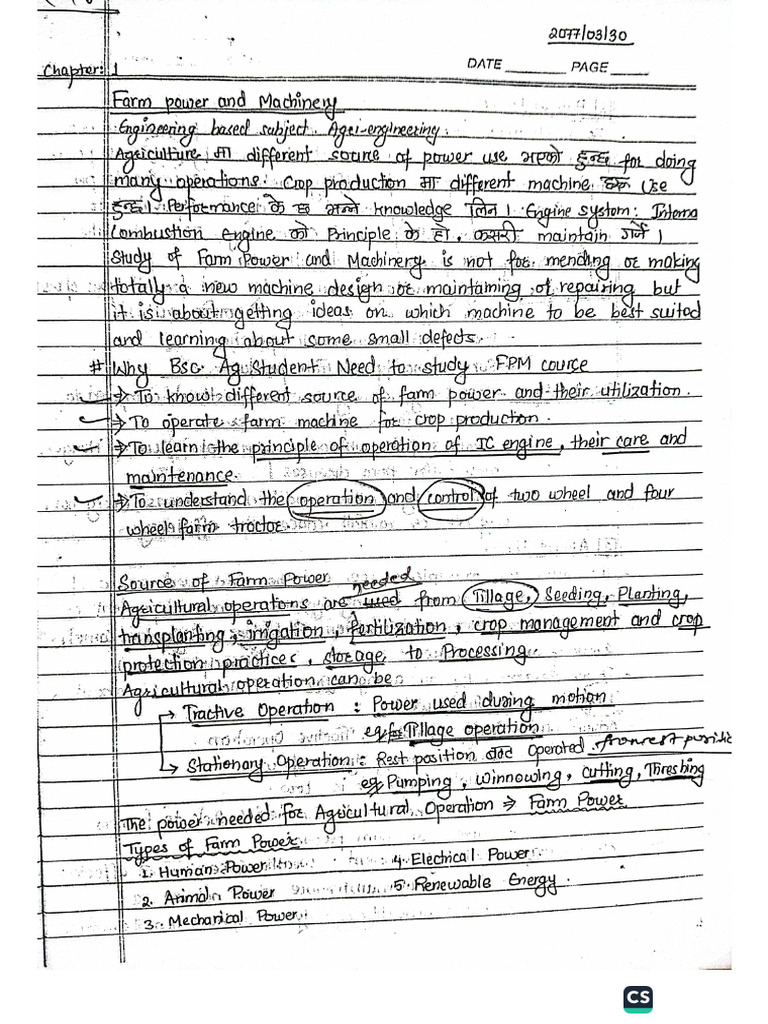 2077/03/30
DATE PAGE
Chapter: 1
Farm power and Machinery
Engineering based subject. Agri-engineering.
Agriculture मा different source of power use भएको हुन्छ for doing
many operations. Crop production मा different machine हरू use
हुन्छ। Performance के छ भन्ने knowledge लिन। Engine system: Interna
Combustion engine को Principle के हो, कसरी maintain गर्ने।
Study of Farm Power and Machinery is not for mending or making
totally a new machine design or maintaming of repairing but
it is about getting ideas on which machine to be best suited
and learning about some small defects.
# Why Bsc. Ag Student Need to study FPM cource
→ To know different source of farm power and their utilization.
→ To operate farm machine for crop production.
→ To learn the principle of operation of IC engine, their care and
maintenance.
→ To understand the operation and control of two wheel and four
wheel farm tractor.
Source of Farm Power
needed
Agricultural operations are used from Tillage, Seeding, Planting,
transplanting, irrigation, fertilization, crop management and crop
protection practices, storage to Processing
Agricultural operation can be
→ Tractive Operation : Power used during motion
eg: Tillage operation
→ Stationary Operation : Rest position बाट operated from rest positi
eg Pumping, winnowing, cutting, Threshing
The power needed for Agricultural Operation ⇒ Farm Power
Types of Farm Power
1. Human Power
4. Electrical Power
2. Animal Power
5. Renewable Energy.
3. Mechanical Power
CS